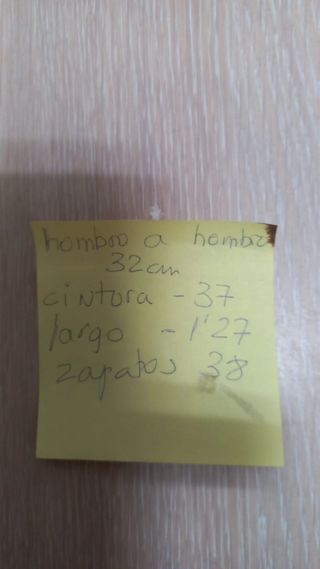 hombro a hombro
32cm
cintora - 37
largo - 1'27
zapatos 38